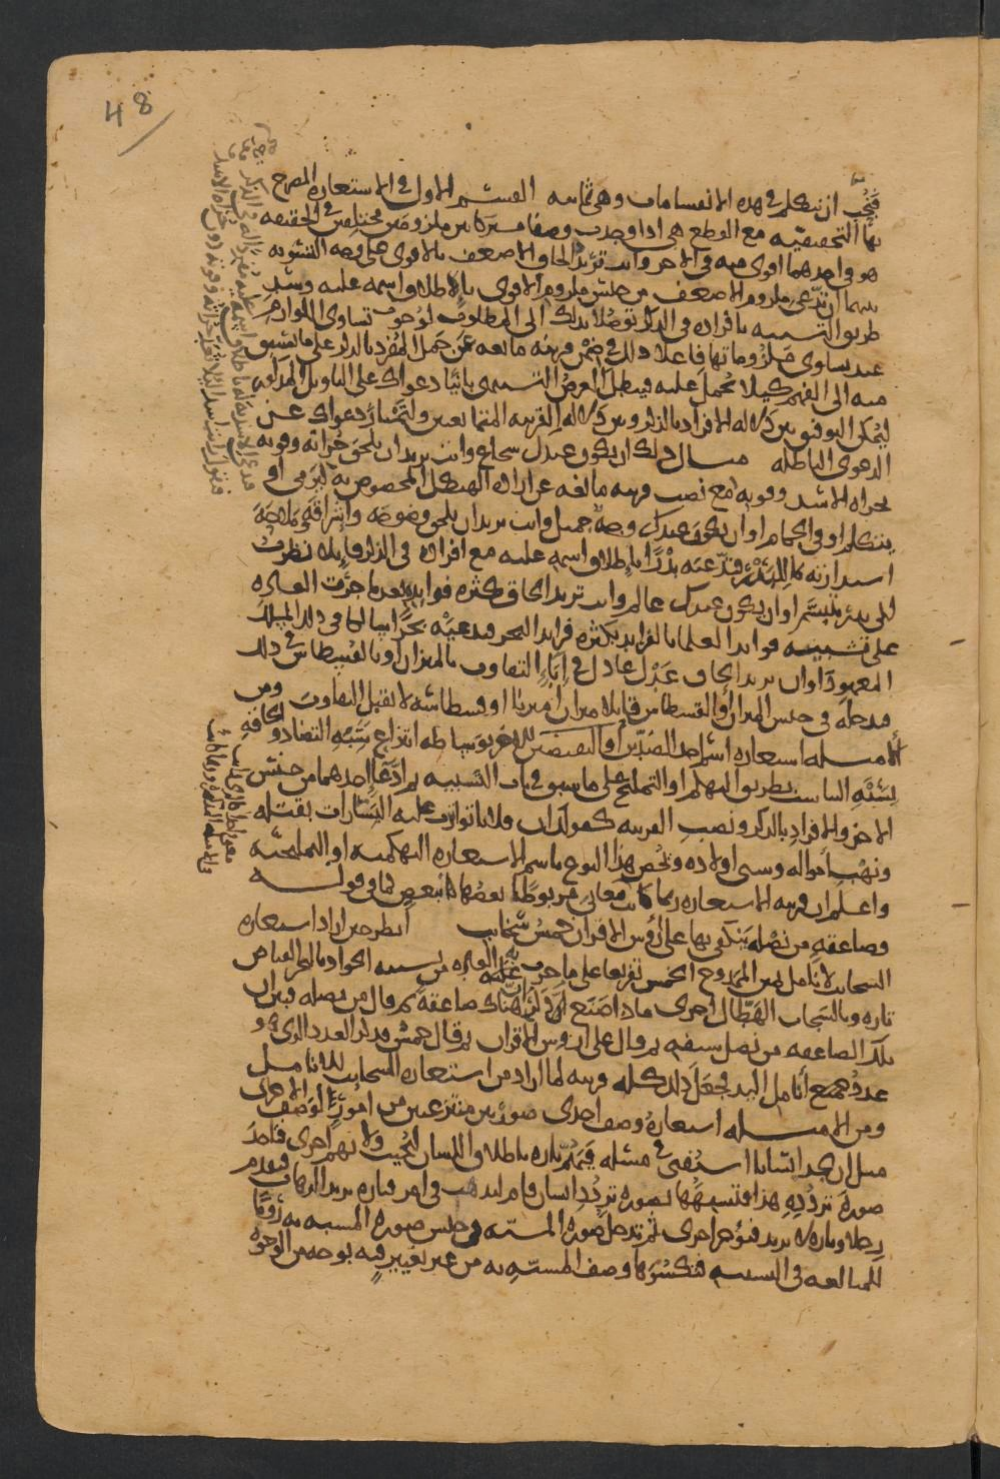 48
فيجب ان نتكلم في هذه الانقسامات وهي ثمانيه القسم الاول في الاستعاره المصرح
بها التحقيقيه مع القطع هي اذا وجدت وصفا مشتركا بين ملزومين مختلفين في الحقيقه
هو في احدهما اقوى منه في الاخر وانت تريد الحاق الاضعف بالاقوى على وجه التسويه
بينهما ان تدعي ملزوم الاضعف من جنس ملزوم الاقوى باطلاق اسمه عليه وسد
طريق التشبيه بافراده في الذكر توصلا بذلك الى المطلوب لوجوب تساوي اللوازم
عند تساوي ملزوماتها فاعلا ذلك في ضمن قرينه مانعه عن حمل المفرد بالذكر على ما يسبق
منه الى الفهم كيلا يحمل عليه فيبطل الغرض التشبيهي بانيا دعواك على التاويل المذكور
ليمكن التوفيق بين دلاله الافراد بالذكر وبين دلاله القرينه المتمانعتين ولتمتاز دعواك عن
الدعوى الباطله مثال ذلك ان يكون عندك شجاع وانت تريد ان تلحق جراته وقوته
بجراه الاسد وقوته مع نصب قرينه مانعه عن اراده الهيكل المخصوص به كيرمي او
يتكلم او في الحمام او ان يكون عندك وجه جميل وانت تريد ان تلحق وضوحه واشراقه وملاحه
استدارته بما للبدر فتدعيه بدرا باطلاق اسمه عليه مع افراده في الذكر قايلا نظرت
الى بدر يتبسم او ان يكون عندك عالم وانت تريد الحاق كثره فوايده بعد ما جرت العاده
على تشبيه فوايد العلما بالفرايد بكثره فرايد البحر فتدعيه بحرا سالكا في ذلك المسلك
المعهود او ان تريد الحاق عدل عادل في اباء التفاوت بالميزان او بالقسطاس في ذلك
فتدخله في جنس الميزان او القسطاس قايلا ميزان اميرنا او قسطاسه لا تقبل التفاوت ومن
الامثله استعاره اسم احد الضدين او النقيضين للاخر بوساطه انتزاع شبه التضاد والحاقه
بشبه التناسب بطريق التهكم او التمليح على ما سبق في باب التشبيه ثم ادعاء احدهما من جنس
الاخر والافراد بالذكر ونصب القرينه كقولك ان فلانا تواترت عليه البشارات بقتله
ونهب امواله وسبي اولاده ويخص هذا النوع باسم الاستعاره التهكميه او التمليحيه
واعلم ان قرينه الاستعاره ربما كانت معاني مربوطا بعضها ببعض كما في قولـــه
وصاعقه من نصله ينكفي بها على ارؤس الاقران خمس سحايب انظر حين اراد استعاره
السحايب لانامل يمين الممدوح الخمس تفريعا على ما جرت عليه العاده من تشبيه الجواد بالبحر الفياض
تاره وبالسحاب الهطال اخرى ماذا صنع ذكر ان هناك صاعقه ثم قال من نصله فبين ان
تلك الصاعقه من نصل سيفه ثم قال على ارؤس الاقران ثم قال خمس فذكر العدد الذي هو
عدد جميع انامل اليد فجعل ذلك كله قرينه لما اراد من استعاره السحايب للانامل
ومن الامثله استعاره وصف احدى صورتين منتزعتين من امور لوصف الاخرى
مثل ان تجد انسانا استفتي في مسئله فيهم تاره باطلاق اللسان ليجيب ولا يهم اخرى فتاخذ
صوره تردده هذا فتشبهها بصوره تردد انسان قام ليذهب في امر فتاره يريد الذهاب فيقدم
رجلا وتاره لا يريد فيؤخر اخرى ثم تدخل صوره المشبه في جنس صوره المشبه به روما
للمبالغه في التشبيه فتكسوها وصف المشبه به من غير تغيير فيه بوجه من الوجوه